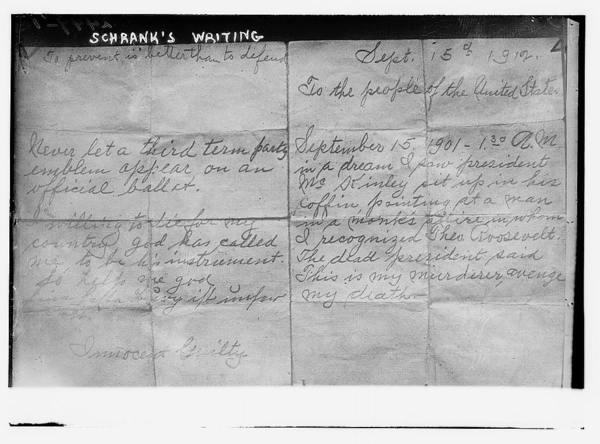 SCHRANK'S WRITING
To prevent is better than to defend
Never let a third term party
emblem appear on an
official ballot.
I willing to die for my
country, god has called
me to be his instrument.
So help me god
Innocent Guilty
Sept. 15th 1912.
To the people of the United States
September 15, 1901 - 1.30 A.M
in a dream I saw president
Mc Kinley sit up in his
coffin pointing at a man
in a monk's attire in whom
I recognized Theo. Roosevelt.
The dead president said
This is my murderer, avenge
my death.